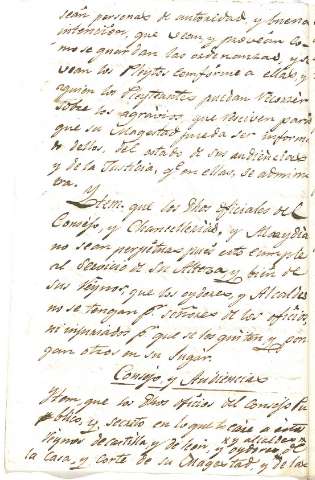 seán personas de autoridad, y buena
intención, que Vean, y provean co-
mo se guardan las ordenanzas, y se
Vean los Pleytos conforme a ellas, y
a quien los Pleyteantes puedan Recorrer
sobre los agravios, que reciven para
que su Magestad pueda ser informa
dellos, del estado de sus audiencias
y de la Justicia, q.e en ellas, se adminis
tra.
Ytem que los Dhos oficiales del
Consejo, y Chancilleria, y
no sean perpetuos pues esto cumple
al Servicio de Su Alteza, y bien de
sus Reynos, que los oydores, y Alcaldes
no se tengan p.r señores de los oficios,
ni injuriados p.r que se los quiten, y pon-
gan otros en su lugar.
Consejo, y Audiencias
Item que los Dhos oficios del Consejo Pu-
blico, y secreto en lo que toca a estos
Reynos de castilla y de leon, y alcaldes
la Casa, y corte de su Magestad, y de las